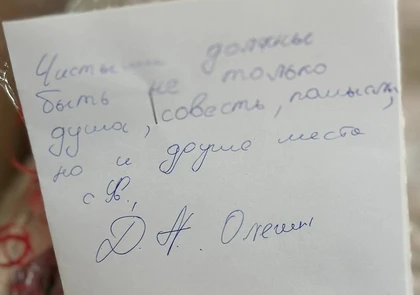 Чистыми должны
быть не только
душа, совесть, помыслы,
но и другие места
с
Д. Н.